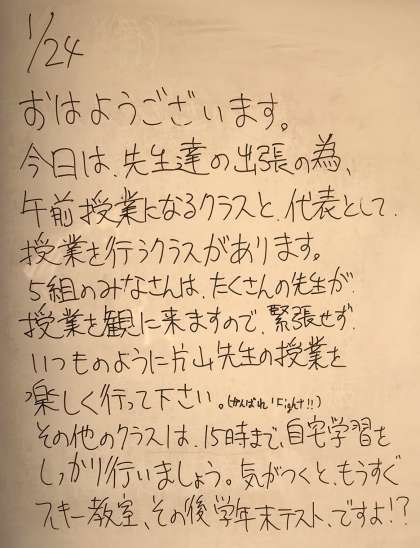 1/24
おはようございます。
今日は、先生達の出張の為、
午前授業になるクラスと、代表として、
授業を行うクラスがあります。
5組のみなさんは、たくさんの先生が、
授業を観に来ますので、緊張せず、
いつものように片山先生の授業を
楽しく行って下さい。(がんばれ!Fight!!)
その他のクラスは、15時まで、自宅学習を
しっかり行いましょう。気がつくと、もうすぐ
スキー教室、その後学年末テスト、ですよ!?